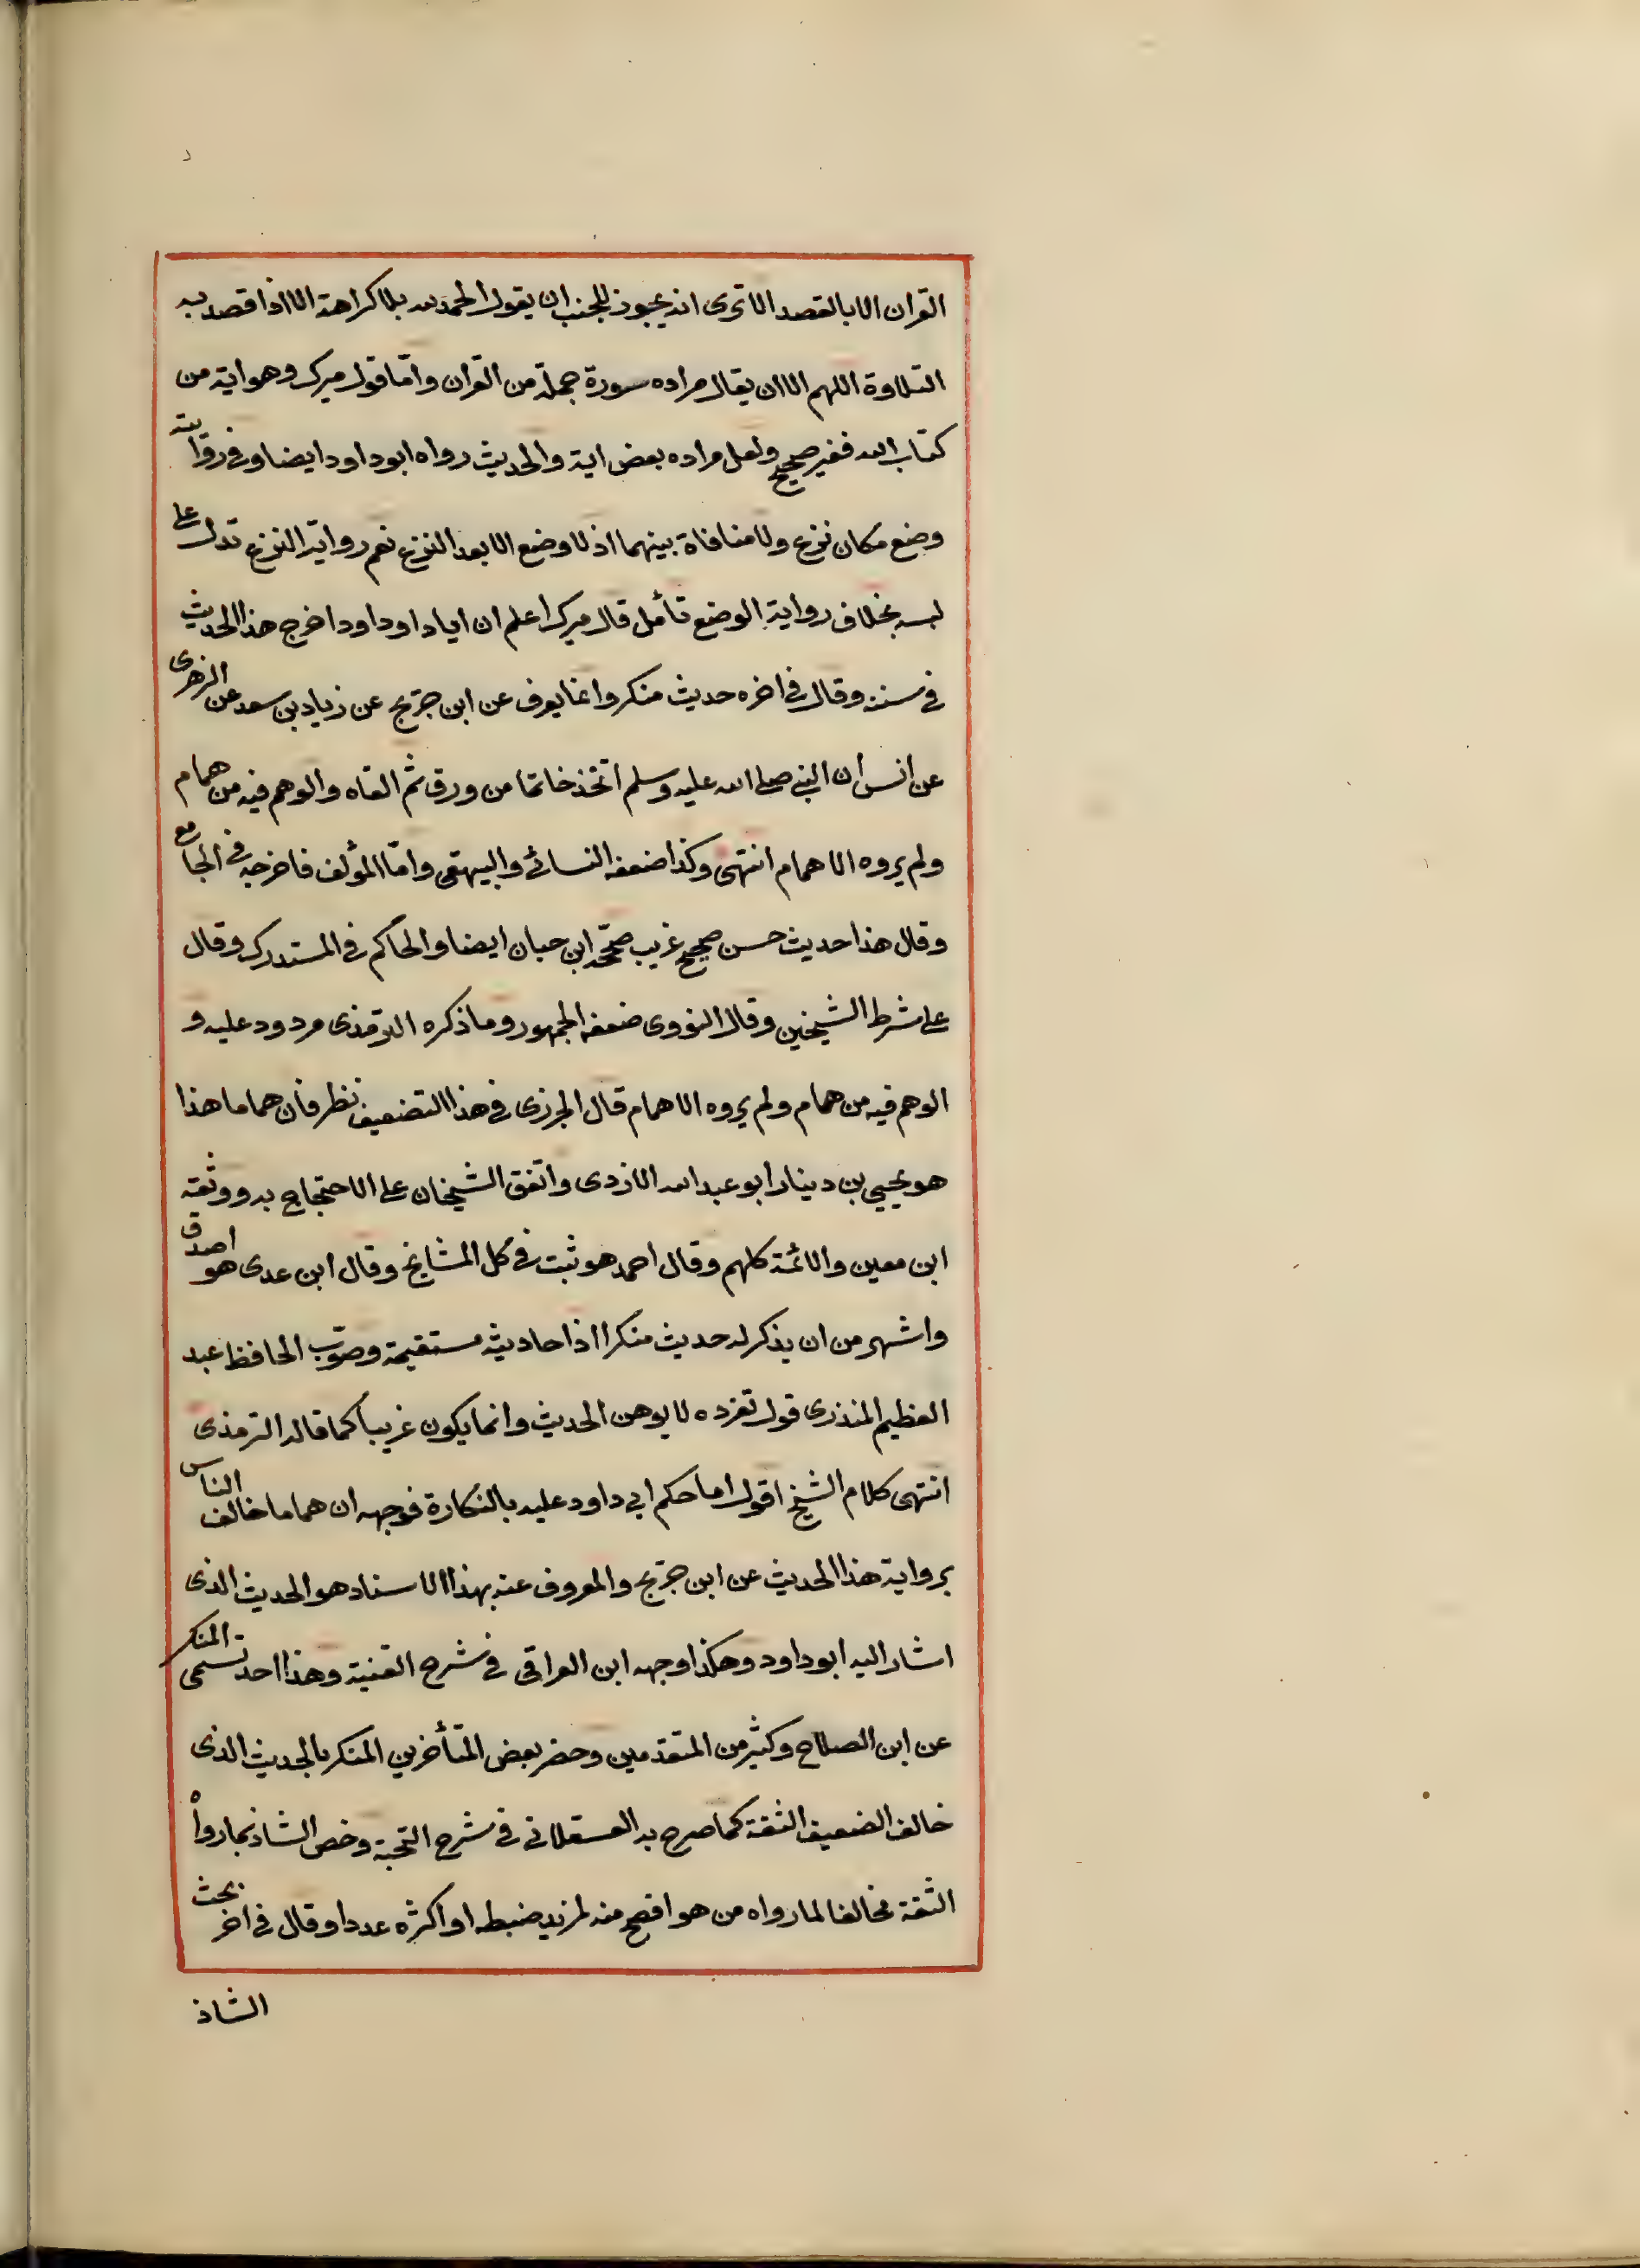 القران الا بالقصد الا ترى انه يجوز للجنب ان يقول الحمد لله بلا كراهة الا اذا قصد به
التلاوة اللهم الا ان يقال مراده سورة جملة من القران واما قول ميرك وهو اية من
كتاب الله فغير صحيح ولعل مراده بعض اية والحديث رواه ابو داود ايضا وفي رواية
وضع مكان نزع ولا منافاة بينهما اذ لا وضع الا بعد النزع نعم رواية النزع تدل على
لبسه بخلاف رواية الوضع تأمل قال ميرك اعلم ان ابا داود اود اخرج هذا الحديث
في سننه وقال في اخره حديث منكر وانما يعرف عن ابن جريج عن زياد بن سعد عن الزهرى
عن انس ان النبي صلى الله عليه وسلم اتخذ خاتما من ورق ثم القاه والوهم فيه من همام
ولم يروه الا همام انتهى وكذا ضعفه النسائي والبيهقى وامّا المؤلف فاخرجه في الجامع
وقال هذا حديث حسن صحيح غريب صحّحه ابن حبان ايضا والحاكم في المستدرك وقال
على شرط الشيخين وقال النووى ضعفه الجمهور وما ذكره الترمذى مردود عليه و
الوهم فيه من همام ولم يروه الا همام قال الجزرى في هذا التضعيف نظر فان هماما هذا
هو يحيى بن دينار ابو عبد الله الازدى واتفق الشيخان على الاحتجاج به ووثقه
ابن معين والائمة كلهم وقال احمد هو ثبت في كل المشايخ وقال ابن عدى هو اصدق
واشهر من ان يذكر له حديث منكرا اذ احاديثه مستقيمة وصوّب الحافظ عبد
العظيم المنذرى قول تفرده لا يوهن الحديث وانما يكون غريباً كما قاله الترمذى
انتهى كلام الشيخ اقول اما حكم ابي داود عليه بالنكارة فوجهه ان هماما خالف الناس
برواية هذا الحديث عن ابن جريج والمعروف عنه بهذا الاسناد هو الحديث الذى
اشار اليه ابو داود وهكذا وجهه ابن العراقى في شرح الفنية وهذا احد تسمى المنكر
عن ابن الصلاح وكثير من المتقدمين وحضر بعض المتأخرين المنكر بالحديث الذى
خالف الضعيف الثقة كما صرح به العسقلانى في شرح النخبة وخص الشاذ بما رواه
الثقة مخالفا لما رواه من هو افصح منه لمزيد ضبطه او اكثره عددا وقال في اخر بحث
الشاذ